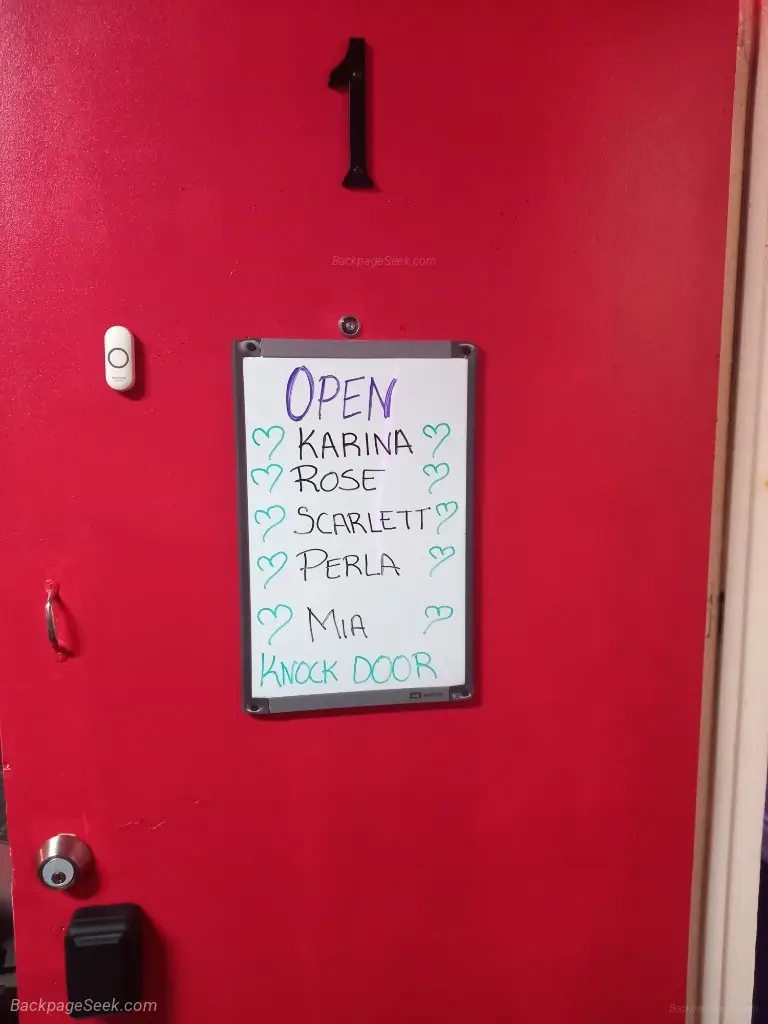 1
BackpageSeek.com
OPEN
KARINA
ROSE
SCARLETT
PERLA
MIA
KNOCK DOOR
BackpageSeek.com